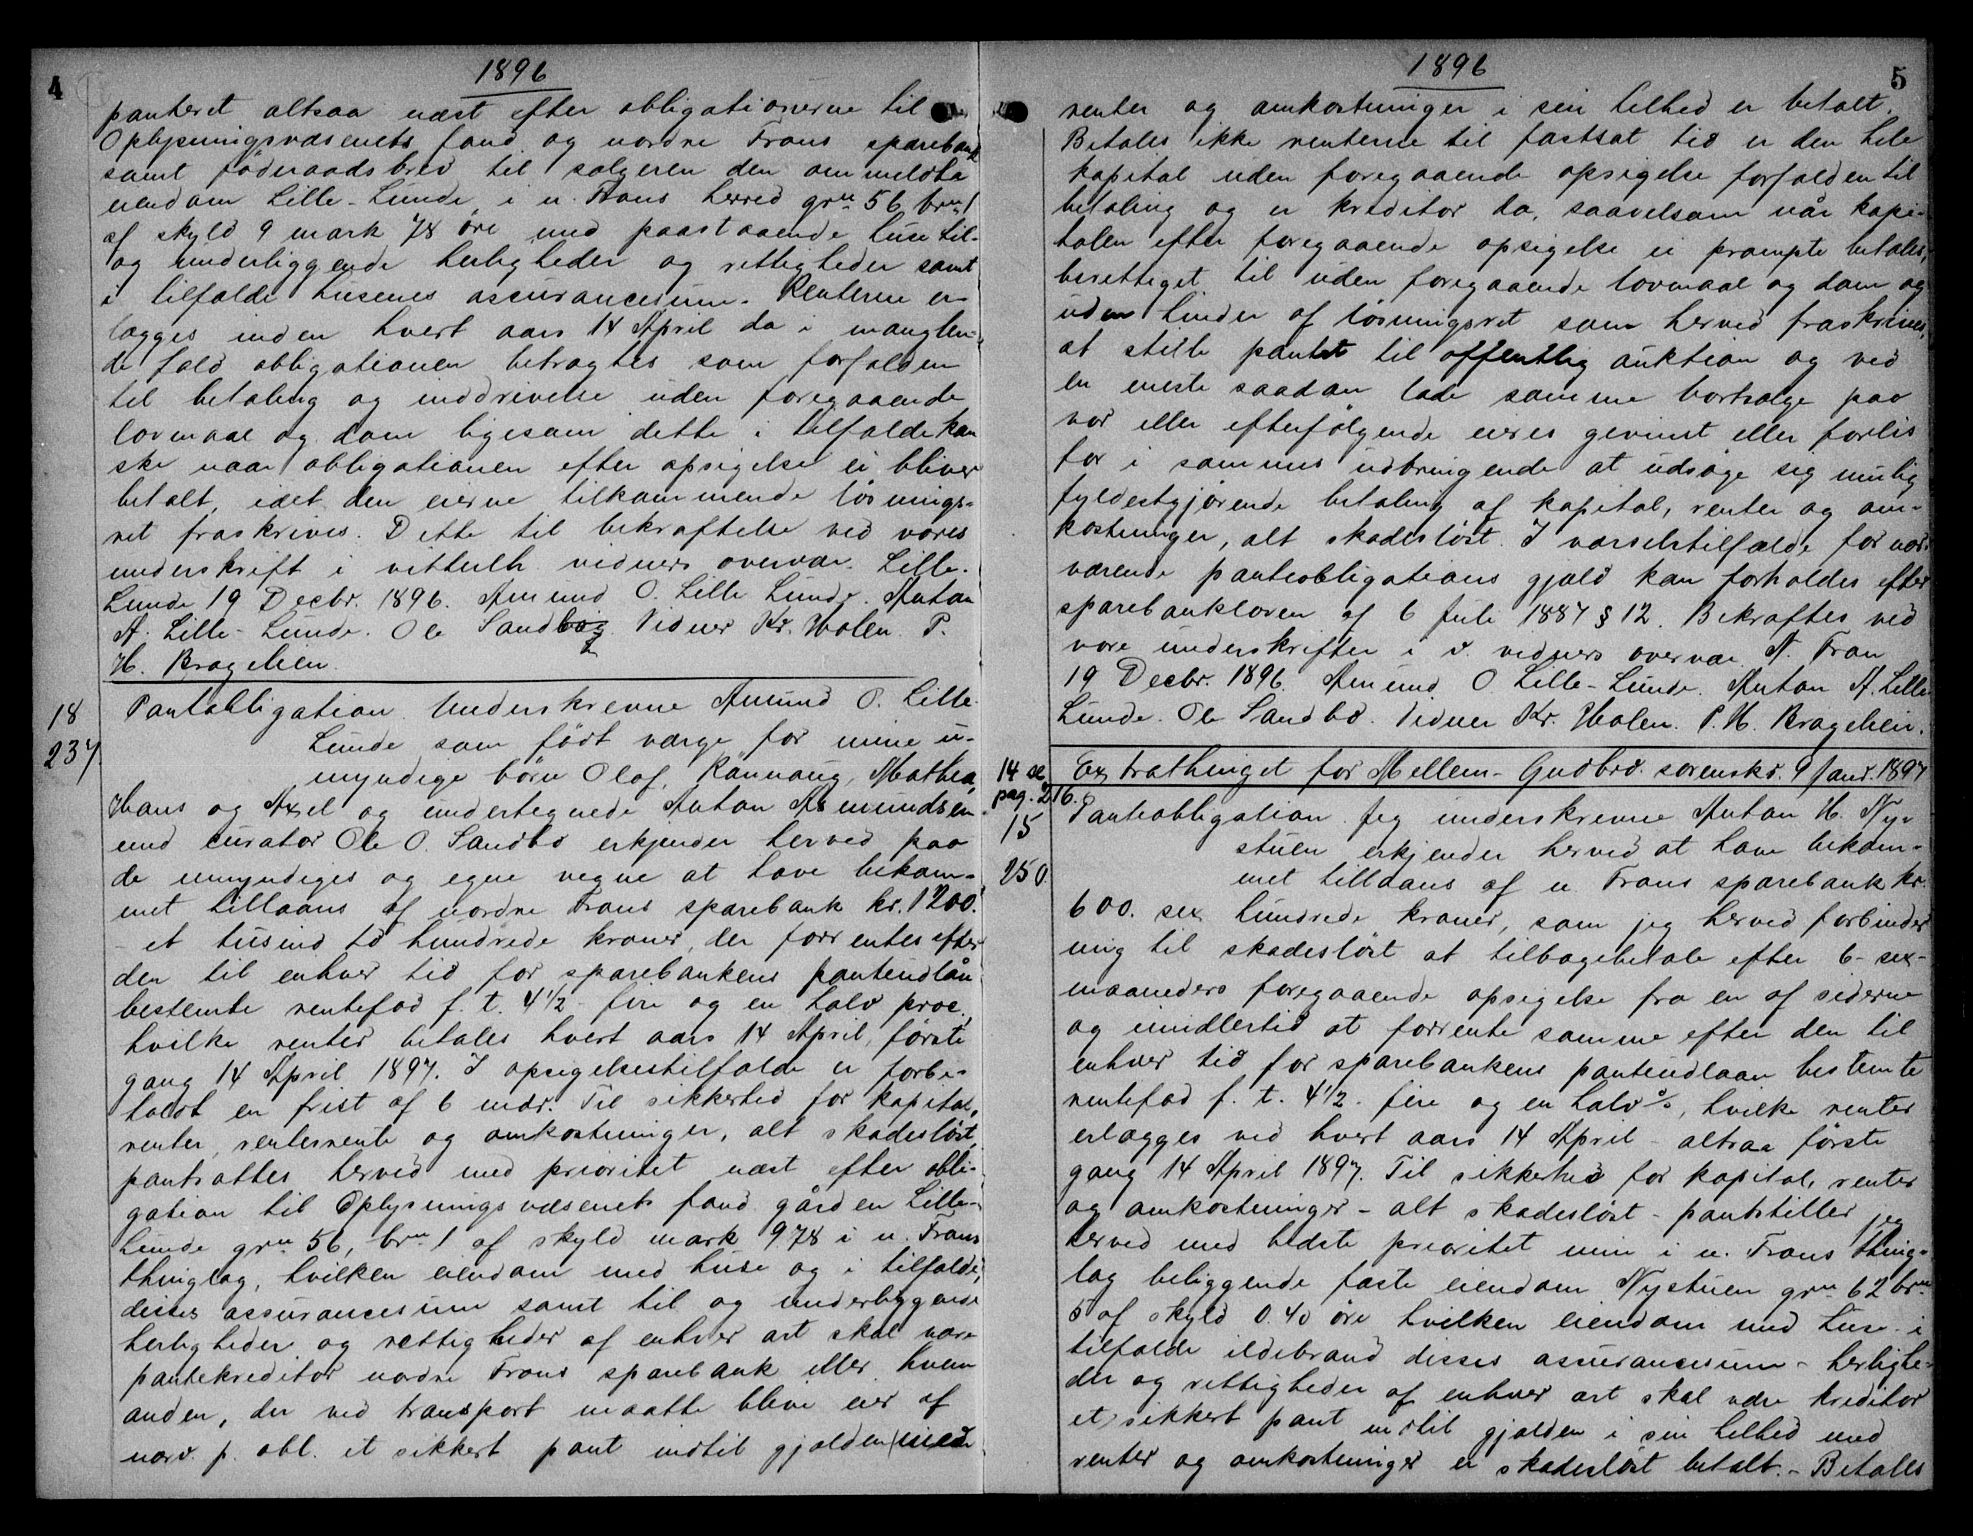 4
1896
panteret altsaa næst efter obligationerne til
Oplysningsvæsenets fond og nordre Frons sparebank
samt föderaadsbrev til sælgeren den ommeldte
eiendom Lille-Lunde i n. Frons herred grn 56 brn 1
af skyld 9 mark 78 öre med paastaaende huse til-
og underliggende herligheder og rettigheder samt
i tilfælde husenes assurancesum. Renterne er-
lægges inden hvert aars 14 April da i manglen-
de fald obligationen betragtes som forfalden
til betaling og inddrivelse uden foregaaende
lovmaal og dom ligesom dette i tilfælde kan
ske naar obligationen efter opsigelse ei bliver
betalt, idet den eierne tilkommende lösnings-
ret fraskrives. Dette til bekræftelse ved vores
underskrift i vitterlh. vidners overvær. Lille-
Lunde 19 Decbr. 1896. Amund O. Lille Lunde. Anton
A. Lille-Lunde. Ole Sandbo. Vidner Kr. Holen. P.
H. Bragelien.
18
237.
Pantobligation. Underskrevne Amund O. Lille-
Lunde som födt værge for mine u-
myndige börn Olaf, Rannaug, Mathea,
Hans og Axel og undertegnede Anton Amundsen
med curator Ole O. Sandbo erkjender herved paa
de umyndiges og egne vegne at have bekom-
met tillaans af nordre Frons sparebank kr. 1200.
- et tusind to hundrede kroner, der forrentes efter
den til enhver tid for sparebankens panteudlån
bestemte rentefod f. t. 4 1/2 - fire og en halv proc.,
hvilke renter betales hvert aars 14 April, förste
gang 14 April 1897. I opsigelsestilfælde er forbe-
holdt en frist af 6 mdr. Til sikkerhed for kapital,
renter, rentersrente og omkostninger, alt skadeslöst,
pantsættes herved med prioritet næst efter obli-
gation til Oplysningsvæsenets fond gården Lille-
Lunde grn 56, brn 1 af skyld mark 9 78 i n. Frons
thinglag, hvilken eiendom med huse og i tilfælde,
disses assurancesum samt til og underliggende
herligheder og rettigheder af enhver art skal være
pantekreditor nordre Frons sparebank eller hvem
anden, der ved transport maatte blive eier af
nærv. p. obl. et sikkert pant indtil gjælden med
5
1896
renter og omkostninger i sin helhed er betalt.
Betales ikke renterne til fastsat tid er den hele
kapital uden foregaaende opsigelse forfalden til
betaling og er kreditor da, saavelsom når kapi-
talen efter foregaaende opsigelse ei prompte betales,
berettiget til uden foregaaende lovmaal og dom og
uden hinder af lösningsret som herved fraskrives,
at stille pantet til offentlig auktion og ved
en eneste saadan lade samme bortsælge paa
vor eller efterfölgende eieres gevinst eller forlis
for i sammes udbringende at udsöge sig mulig
fyldestgjörende betaling af kapital, renter og om-
kostninger, alt skadeslöst. I varselstilfælde for nær-
værende panteobligations gjæld kan forholdes efter
sparebankloven af 6 Juli 1887 § 12. Bekræftes ved
vore underskrifter i v. vidners overvær. N. Fron
19 Decbr. 1896. Amund O Lille-Lunde. Anton A. Lille
Lunde. Ole Sandbo. Vidner Kr. Holen. P. H. Bragelien.
Extrathinget for Mellem-Gudbrd. sorenskr. 9 Janr. 1897
14 se
pag. 216.
15
250
Panteobligation. Jeg underskrevne Anton H. Ny-
stuen erkjender herved at have bekom-
met tillaans af n. Frons sparebank kr.
600. sex hundrede kroner, som jeg herved forbinder
mig til skadeslöst at tilbagebetale efter 6- sex-
maaneders foregaaende opsigelse fra en af siderne
og imidlertid at forrente samme efter den til
enhver tid for sparebankens panteudlaan bestemte
rentefod f. t. 4 1/2. fire og en halv %, hvilke renter
erlægges ved hvert aars 14 April - altsaa förste
gang 14 April 1897. Til sikkerhed for kapital, renter
og omkostninger - alt skadeslöst - pantstiller jeg
herved med bedste prioritet min i n. Frons thing-
lag beliggende faste eiendom Nystuen grn 62 brn
5 af skyld 0.40 öre hvilken eiendom med huse i
tilfælde ildebrand disses assurancesum - herlighe-
der og rettigheder af enhver art skal være kreditor
et sikkert pant indtil gjælden i sin helhed med
renter og omkostninger er skadeslöst betalt. - Betales